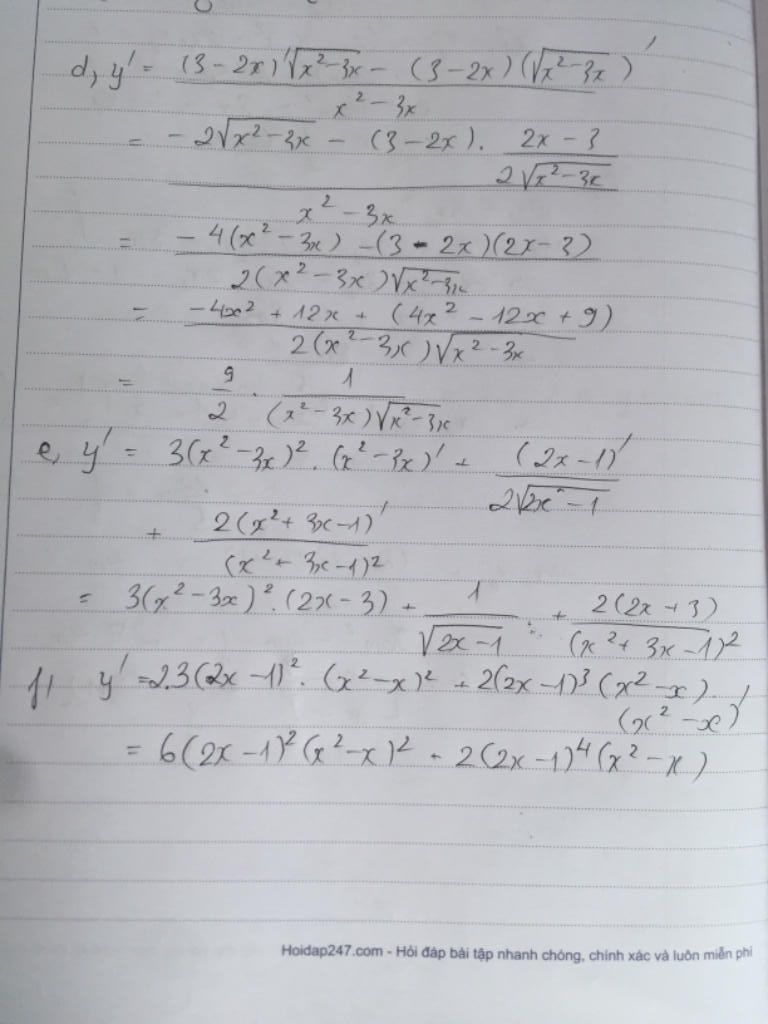 d, y' = ((3 - 2x)'√(x² - 3x) - (3 - 2x)(√(x² - 3x))') / (x² - 3x)
= (-2√(x² - 3x) - (3 - 2x). (2x - 3)/(2√(x² - 3x))) / (x² - 3x)
= (-4(x² - 3x) - (3 - 2x)(2x - 3)) / (2(x² - 3x)√(x² - 3x))
= (-4x² + 12x + (4x² - 12x + 9)) / (2(x² - 3x)√(x² - 3x))
= 9/2 . 1/((x² - 3x)√(x² - 3x))
e, y' = 3(x² - 3x)². (x² - 3x)' + (2x - 1)'/(2√(2x - 1))
+ 2(x² + 3x - 1)'/(x² + 3x - 1)²
= 3(x² - 3x)². (2x - 3) + 1/√(2x - 1) + 2(2x + 3)/(x² + 3x - 1)²
f, y' = 2.3(2x - 1)². (x² - x)² + 2(2x - 1)³(x² - x).
(x² - x)'
= 6(2x - 1)²(x² - x)² + 2(2x - 1)⁴(x² - x)
Hoidap247.com - Hỏi đáp bài tập nhanh chóng, chính xác và luôn miễn phí